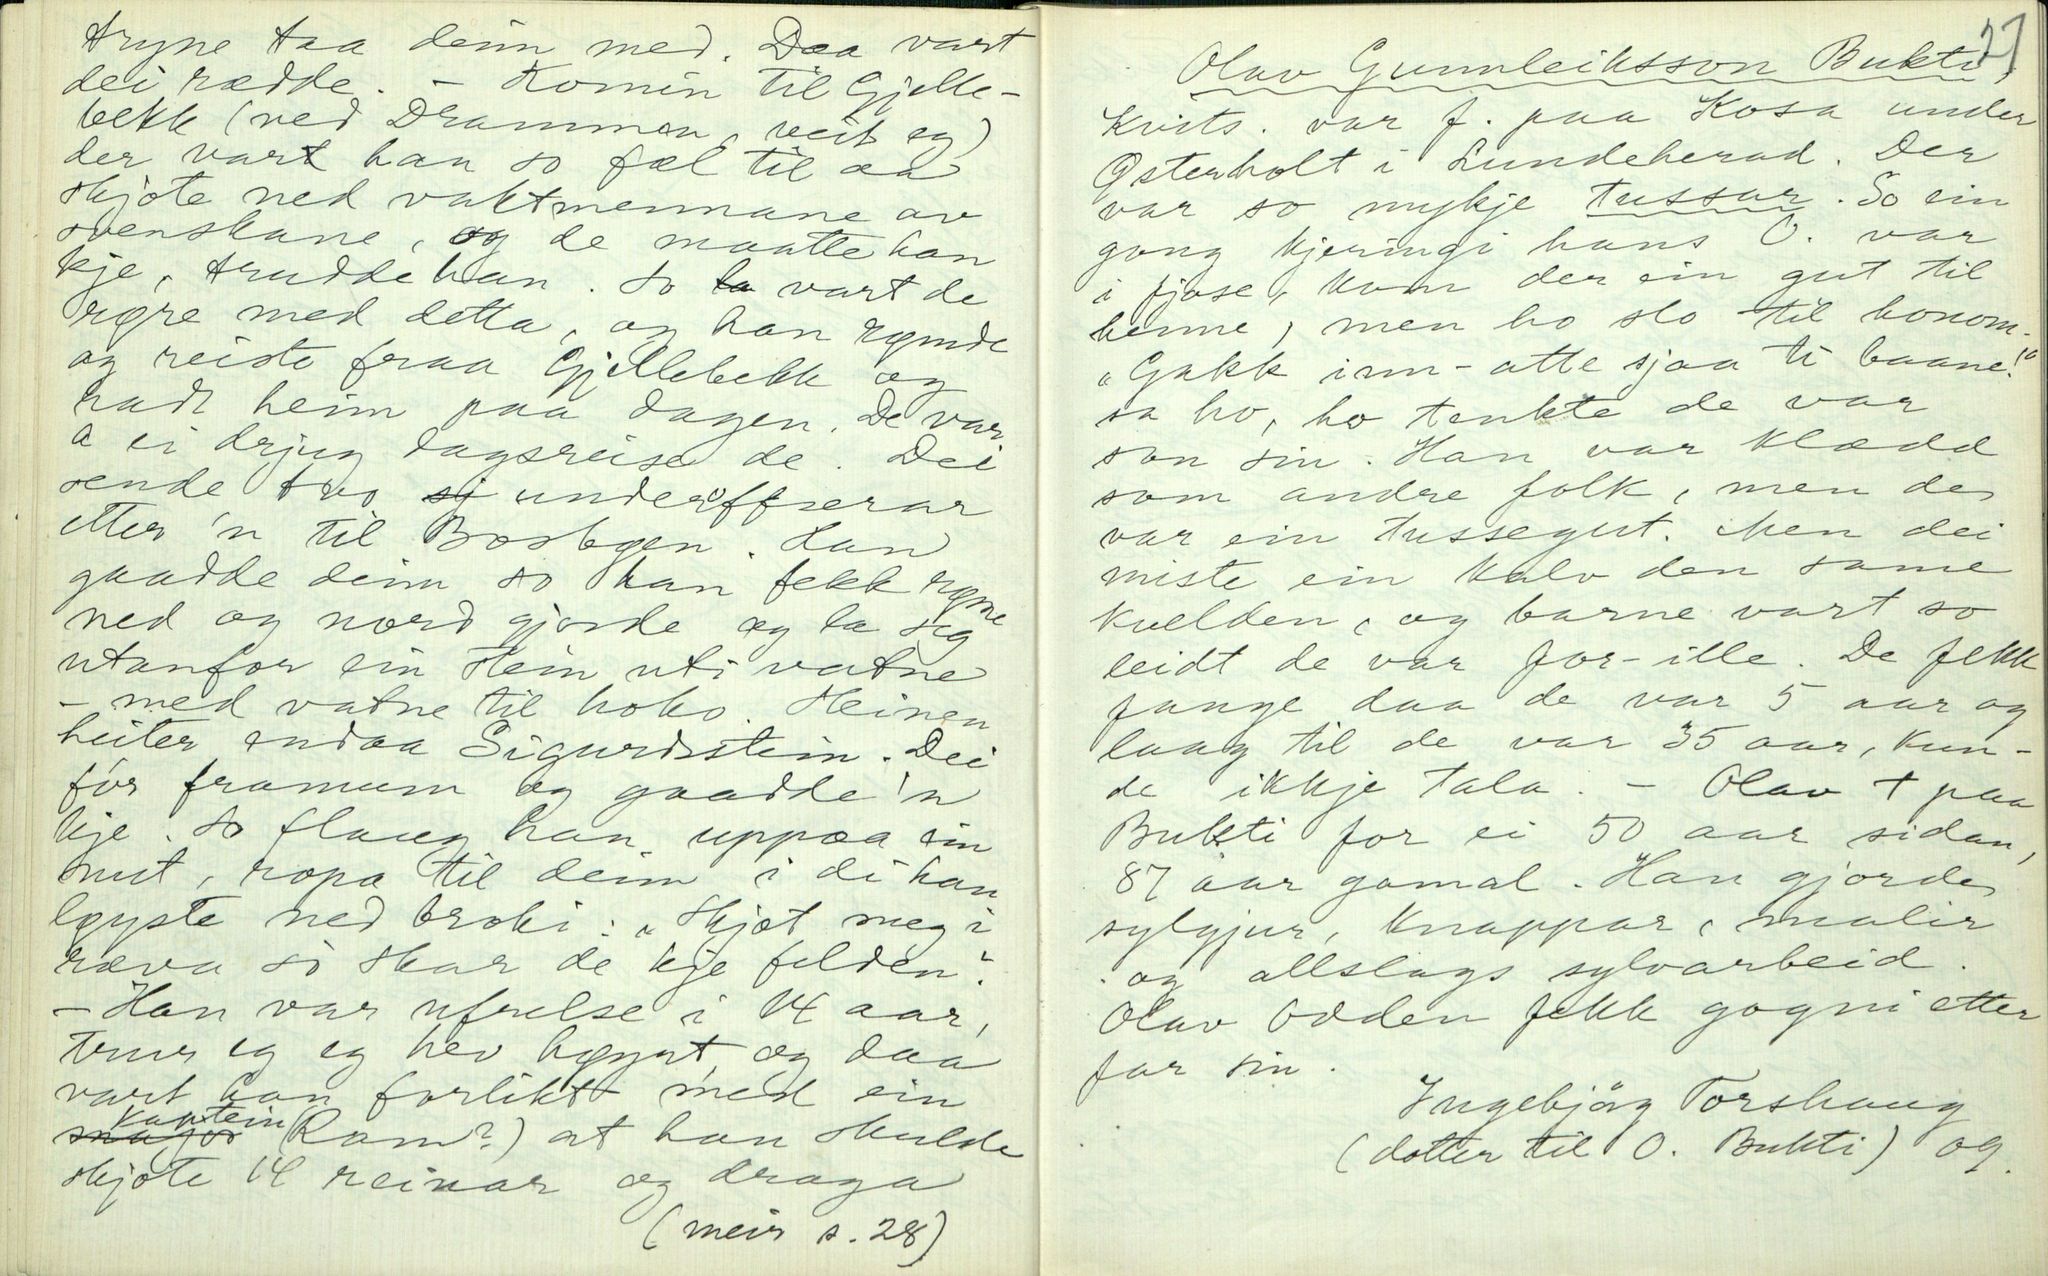 tryne taa deim med. Daa vart
dei rædde. – Komin til Gjelle-
bekk (ved Drammen, veit eg)
der vart han so fæl til aa
skjote ned vaktmennane av
svenskane, og de maatte han
kje, trudde han. So vart de
røre med detta, og han rømde
og reiste fraa Gjellebekk og
radt heim paa dagen. De var
a ei drjug dagsreise de. Dei
sende two underoffiserar
etter 'n til Bosbøen. Han
gaadde deim so han fekk røme
ned og nord gjorde og la seg
utanfor ein stein uti vatne
– med vatne til hoko. Steinen
heiter endaa Sigurdsstein. Dei
fór framum og gaadde 'n
kje. So flaug han uppaa ein
nut, ropa til deim i di han
løyste ned broki: „Skjot meg i
ræva so skar de kje felden".
– Han var ufrelse i 14 aar,
trur eg eg hev høyrt, og daa
vart han forlikt med ein
major kaptein (Ram?) at han skulde
skjote 14 reinar og draga
(meir s. 28)
27
Olav Gunnleiksson Bukti,
Kvits. var f. paa Kosa under
Østerholt i Lundeherad. Der
var so mykje tussar. So ein
gong kjeringi hans O. var
i fjøse, kom der ein gut til
henne, men ho slo til honom.
„Gakk inn-atte sjaa ti baane!"
sa ho, ho tenkte de var
son sin. Han var klædd
som andre folk, men de
var ein tussegut. Men dei
miste ein kalv den same
kvelden, og barne vart so
leidt de var for-ille. De fekk
fange daa de var 5 aar og
laag til de var 35 aar, kun-
de ikkje tala. – Olav + paa
Bukti for ei 50 aar sidan,
87 aar gamal. Han gjorde
sylgjur, knappar, malir
og allslags sylvarbeid.
Olav Odden fekk gogni etter
far sin.
Ingebjörg Torshaug
(dotter til O. Bukti) og